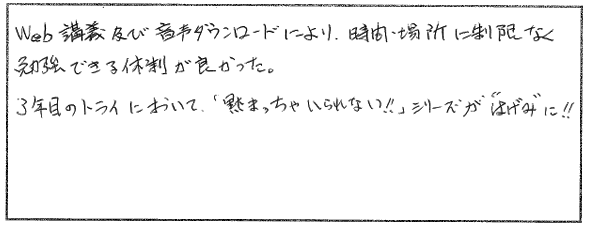 Web講義及び音声ダウンロードにより、時間・場所に制限なく
勉強できる体制が良かった。
3年目のトライにおいて、「黙まっちゃいられない!!」シリーズが“はげみ”に!!